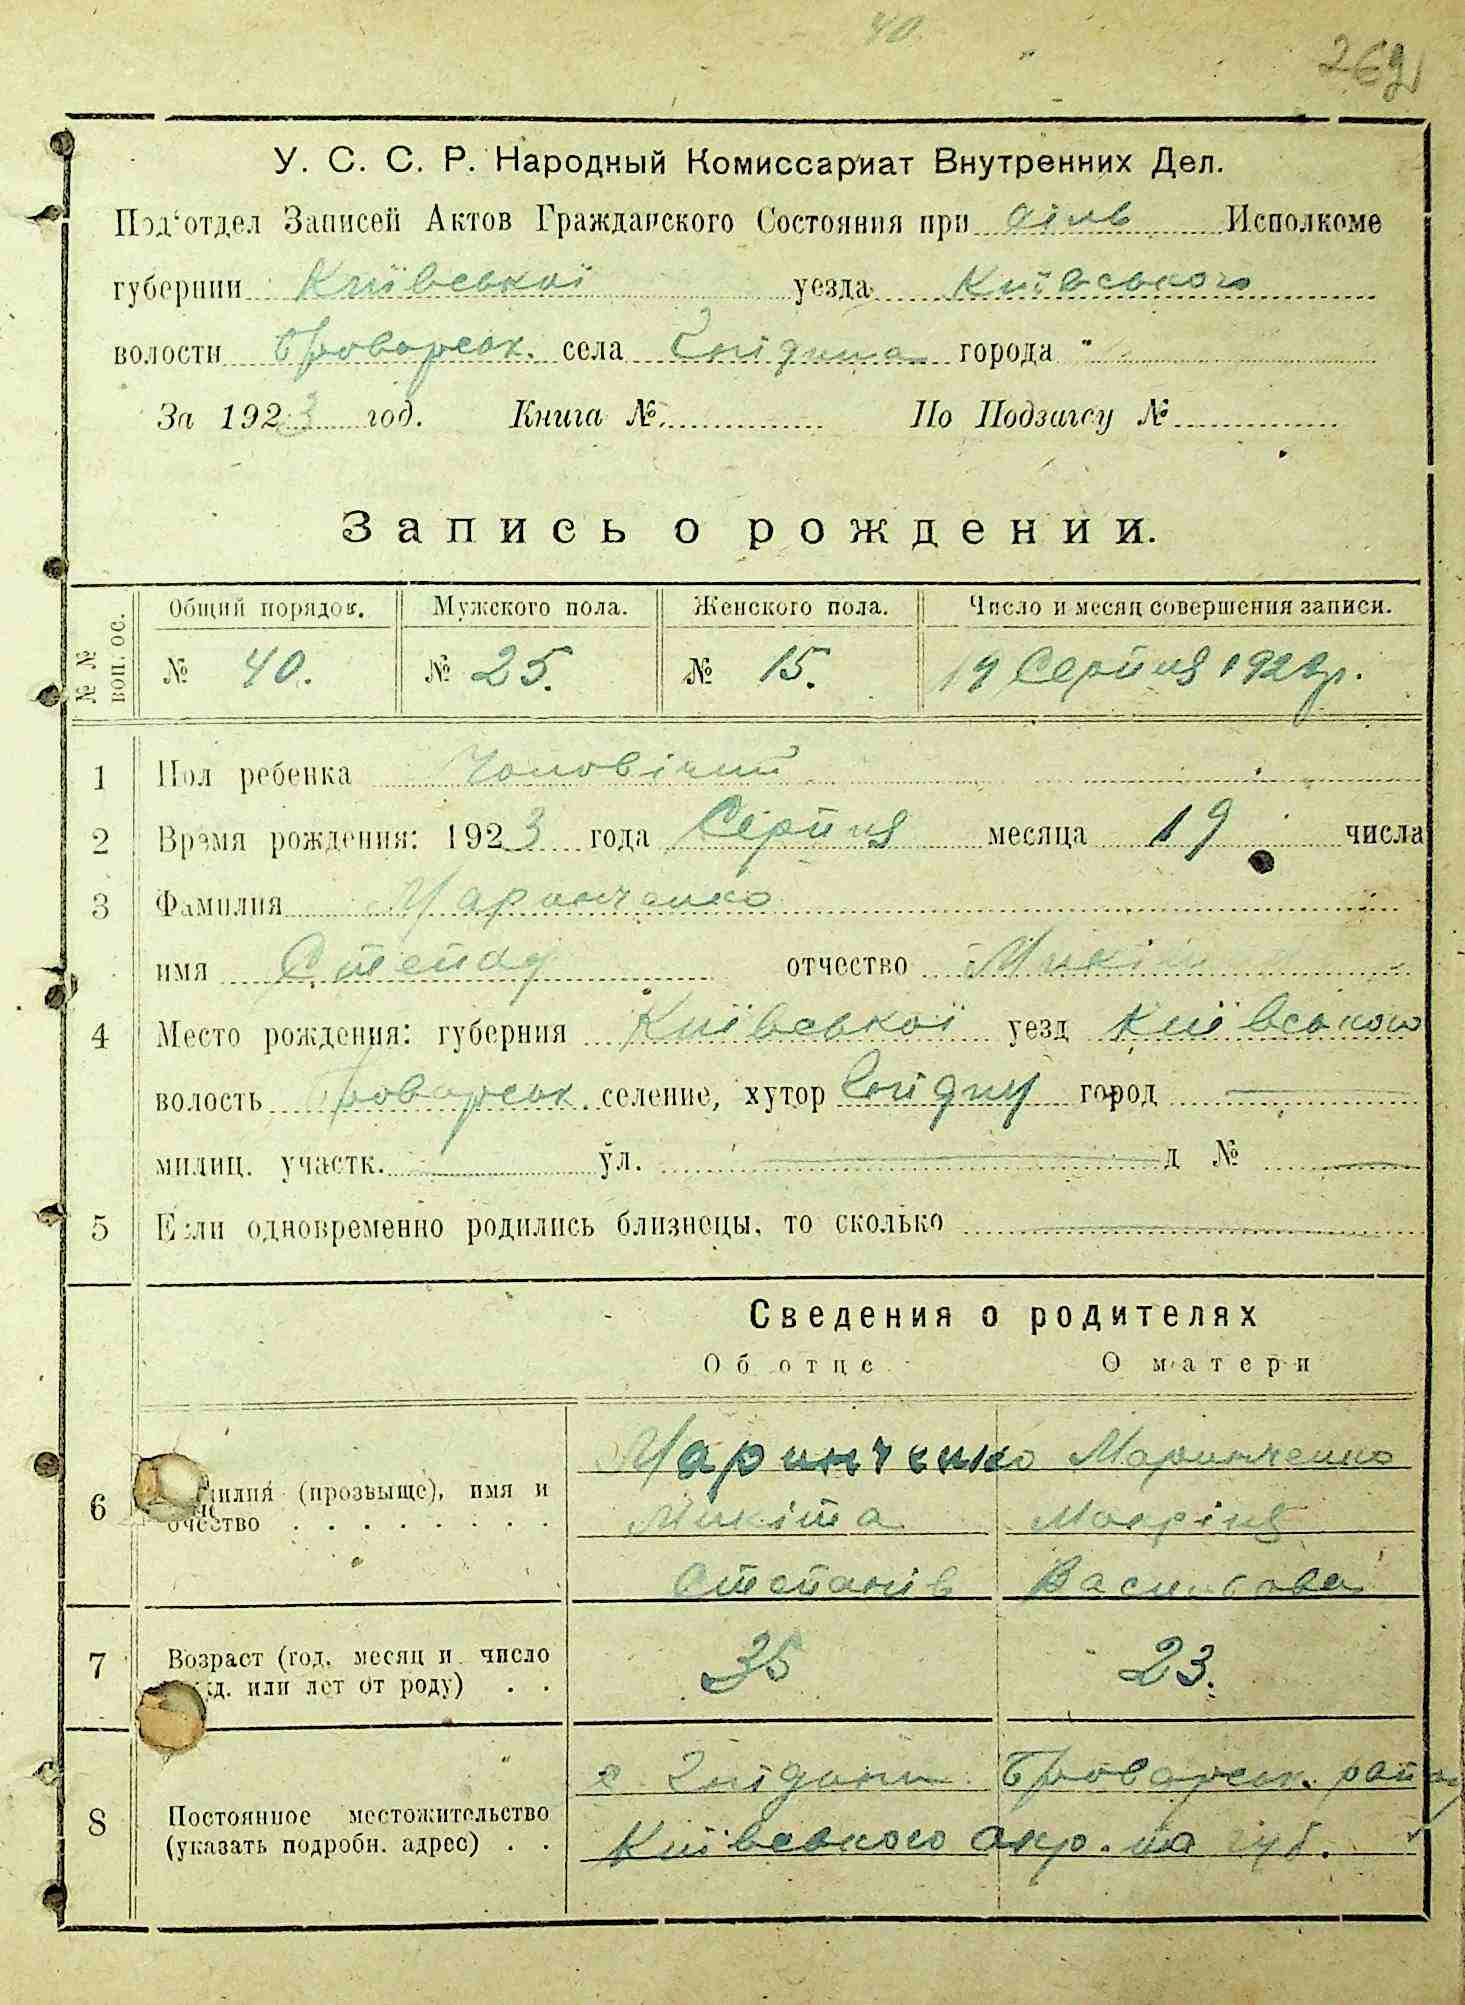 40
269
У. С. С. Р. Народный Комиссариат Внутренних Дел.
Под‘отдел Записей Актов Гражданского Состояния при Исполкоме
губернии Київської уезда Київського
волости Броварськ. села города "
За 1923 год. Книга № По Подзагсу №
Запись о рождении.
№ № воп. ос.
Общий порядок. Мужского пола. Женского пола. Число и месяц совершения записи.
№ 40. № 25. № 15. 19 Серпня 192 р.
1 Пол ребенка Чоловічий
2 Время рождения: 1923 года Серпня месяца 19 числа
3 Фамилия Маринченко
имя Степан отчество Микіт
4 Место рождения: губерния Київської уезд Київського
волость Броварськ. селение, хутор город —
милиц. участк. — ул. — д № —
5 Если одновременно родились близнецы, то сколько —
Сведения о родителях
Об отце О матери
6 Фамилия (прозвыще), имя и очество . . . . . . . .
Маринченко Маринченко
Микіта
Степанів Василова
7 Возраст (год, месяц и число рожд. или лет от роду) . .
35 23.
8 Постоянное местожительство (указать подробн. адрес) . .
с. Броварськ. району
Київського окр. та губ.